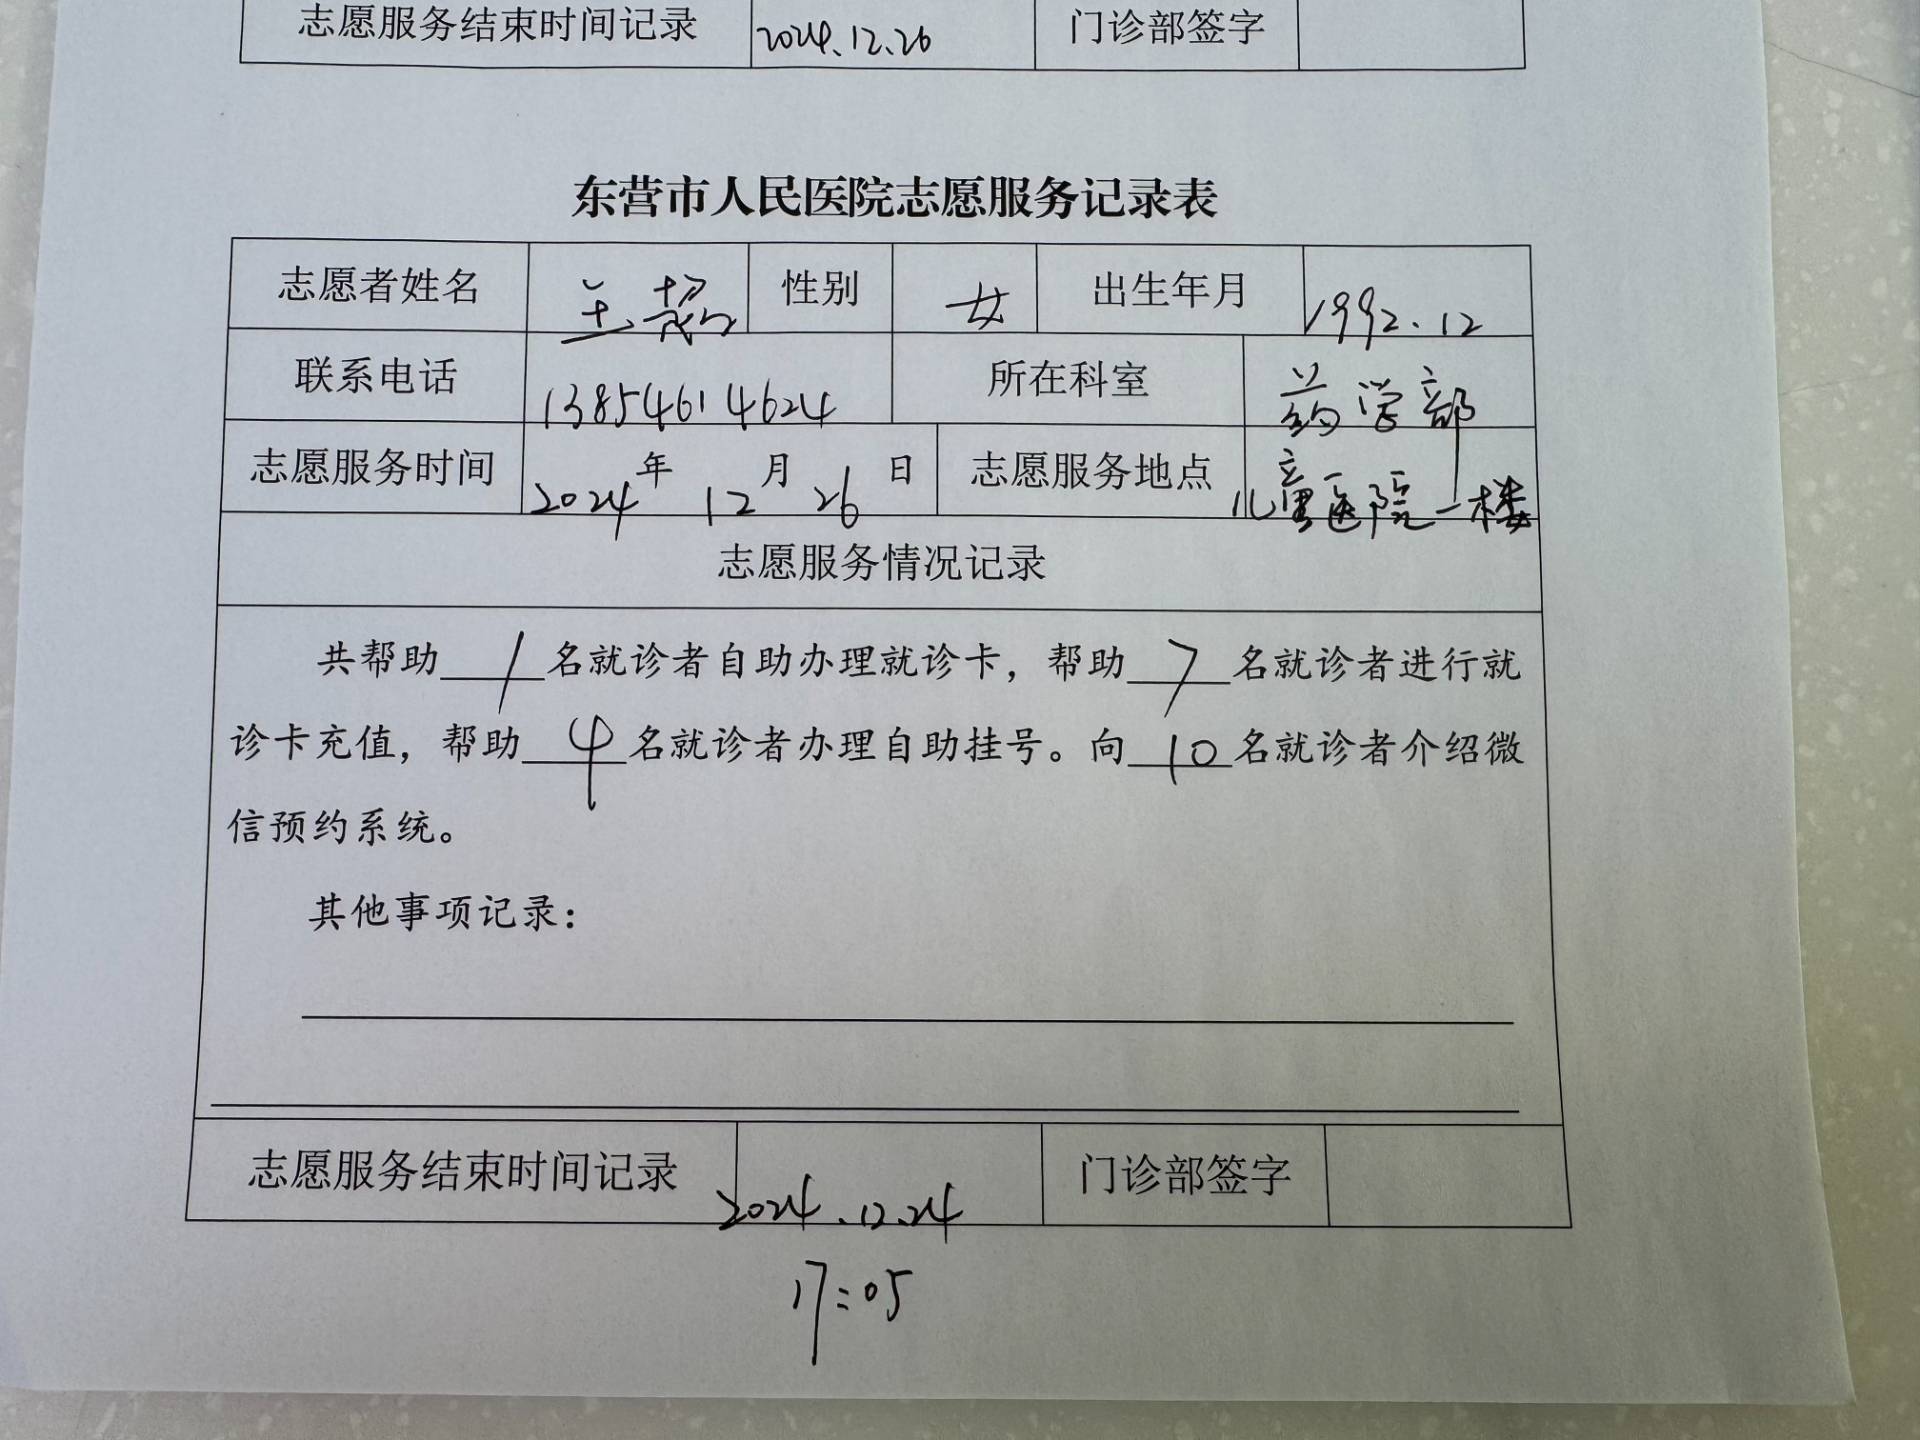 志愿服务结束时间记录 2024.12.26 门诊部签字
东营市人民医院志愿服务记录表
志愿者姓名 性别 女 出生年月 1992.12
联系电话 13854614624 所在科室 药学部
志愿服务时间 2024年 12月 26日 志愿服务地点 儿童医院一楼
志愿服务情况记录
共帮助 1 名就诊者自助办理就诊卡，帮助 7 名就诊者进行就
诊卡充值，帮助 4 名就诊者办理自助挂号。向 10 名就诊者介绍微
信预约系统。
其他事项记录：
志愿服务结束时间记录 2024.12.24 门诊部签字
17:05